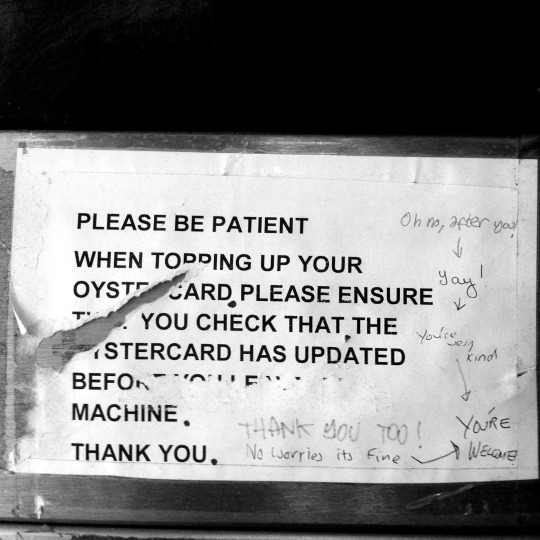 PLEASE BE PATIENT
WHEN TOPPING UP YOUR
CARD PLEASE ENSURE
YOU CHECK THAT THE
OYSTERCARD HAS UPDATED
BEFORE YOU
MACHINE.
THANK YOU.
Oh no, after you!
Yay!
You're very
kind
YOU'RE
WELCOME
THANK YOU TOO!
No Worries its Fine